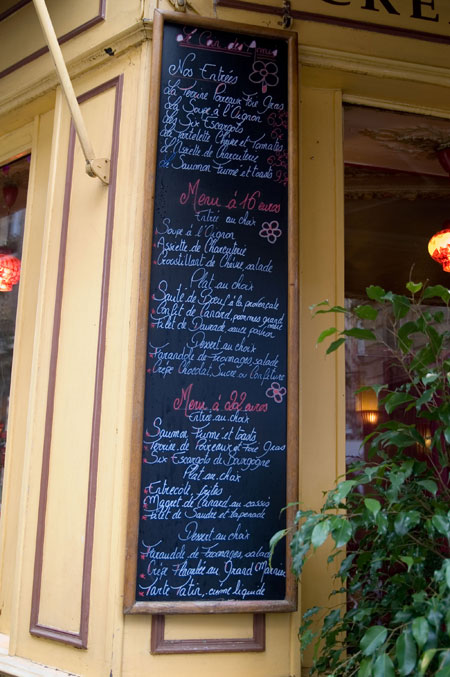 CRÊ
Nos Entrées
La Terrine Poireaux Foie Gras
La Soupe à l'Oignon
Les Six Escargots
La Tartelette Chèvre et Tomates
L'Assiette de Charcuterie
Le Saumon Fumé et toasts
Menu à 16 euros
Entrée au choix
Soupe à l'Oignon
Assiette de Charcuterie
Croustillant de Chèvre, salade
Plat au choix
Sauté de Boeuf à la provençale
Confit de Canard, pommes grand mère
Filet de Daurade, sauce poivron
Dessert au choix
Farandole de Fromages, salade
Crêpe Chocolat, Sucre ou Confiture
Menu à 22 euros
Entrée au choix
Saumon Fumé et toasts
Terrine de Poireaux et Foie Gras
Six Escargots de Bourgogne
Plat au choix
Entrecote, frites
Magret de Canard au cassis
Filet de Sandre et tapenade
Dessert au choix
Farandole de Fromages, salade
Crêpe Flambée au Grand Marnier
Tarte Tatin, crème liquide